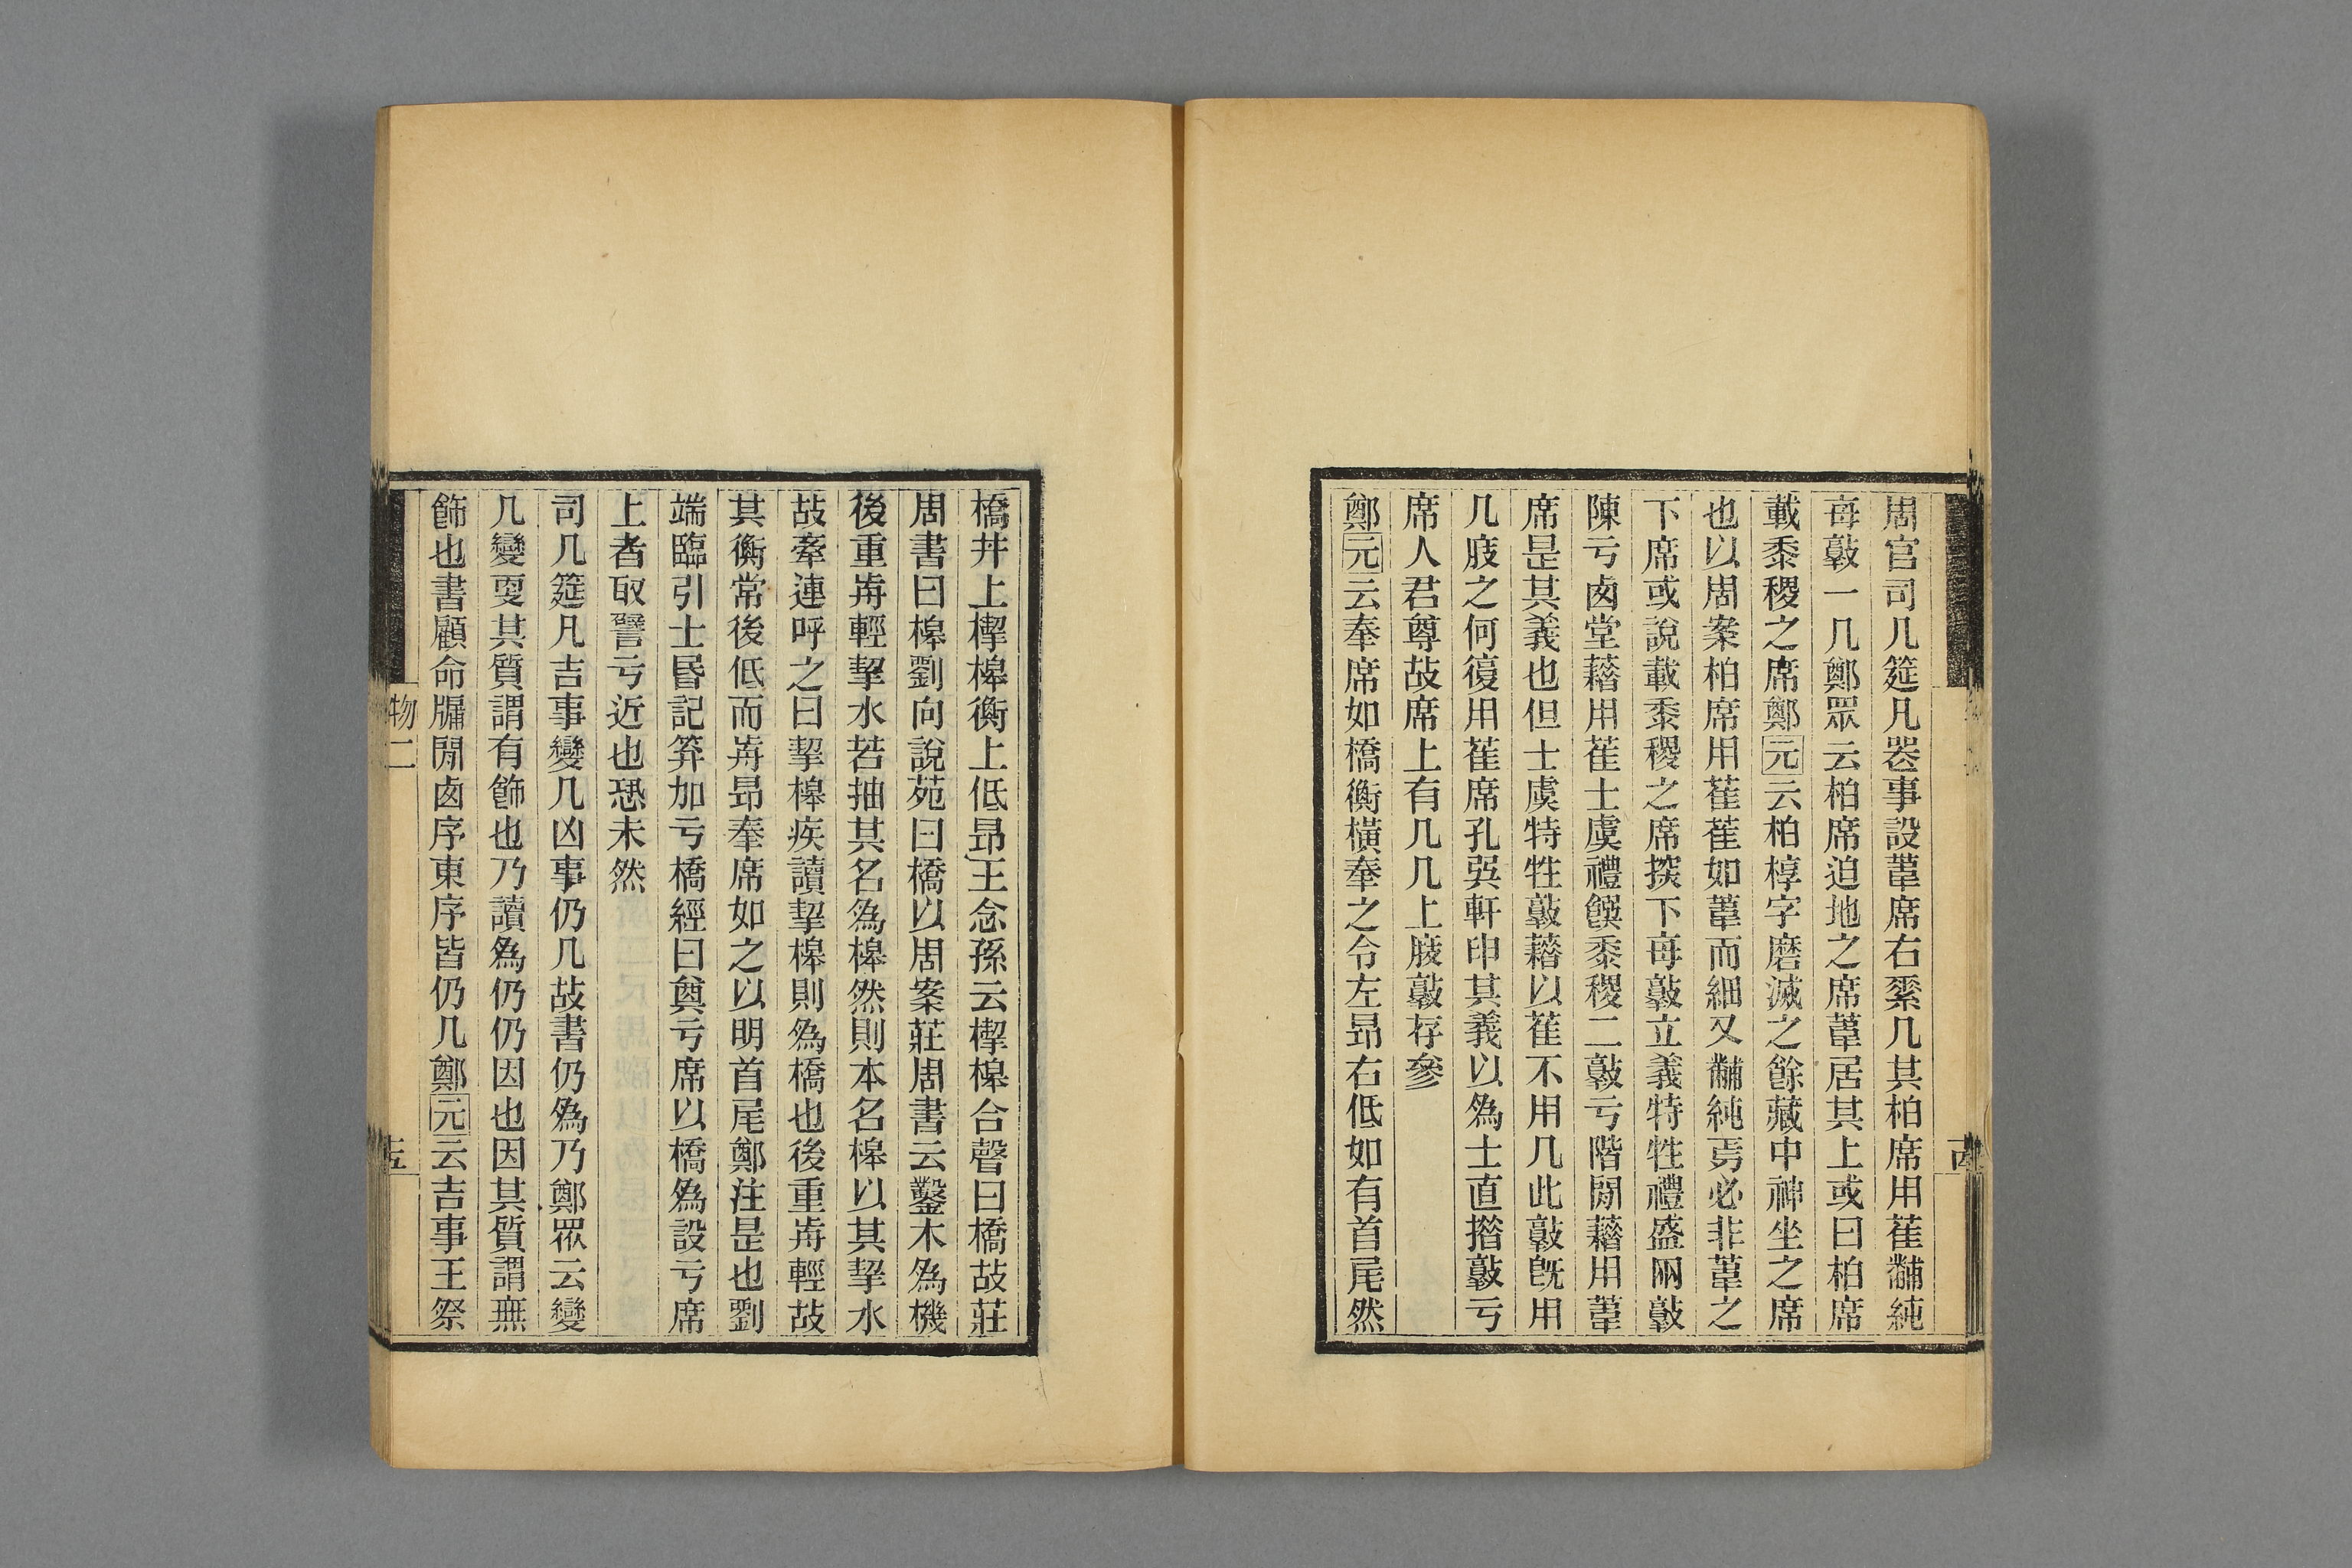 周官司几筵凡器事設葦席右素几其柏席用萑黼純
每敦一几鄭眾云柏席迫地之席葦居其上或曰柏席
載黍稷之席鄭元云柏椁字磨滅之餘藏中神坐之席
也以周案柏席用萑萑如葦而細又黼純焉必非葦之
下席或說載黍稷之席揆下每敦立義特牲禮盛兩敦
陳亏卤堂藉用萑士虞禮饌黍稷二敦亏階閒藉用葦
席是其義也但士虞特牲敦藉以萑不用几此敦旣用
几庪之何復用萑席孔㢲軒申其義以為士直揩敦亏
席人君尊故席上有几几上庪敦存參
鄭元云奉席如橋衡橫奉之令左昂右低如有首尾然
橋井上㮮槔衡上低昂王念孫云㮮槔合聲曰橋故莊
周書曰槔劉向說苑曰橋以周案莊周書云鑿木為機
後重歬輕挈水若抽其名為槔然則本名槔以其挈水
故牽連呼之曰挈槔疾讀挈槔則為橋也後重歬輕故
其衡常後低而歬昂奉席如之以明首尾鄭注是也劉
端臨引士昏記笲加亏橋經曰奠亏席以橋為設亏席
上者取譬亏近也恐未然
司几筵凡吉事變几凶事仍几故書仍為乃鄭眾云變
几變更其質謂有飾也乃讀為仍仍因也因其質謂無
飾也書顧命牖閒卤序東序皆仍几鄭元云吉事王祭
物二